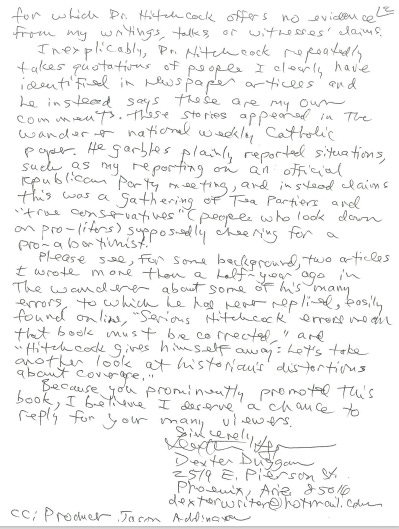 for which Dr. Hitchcock offers no evidence
from my writings, talks or witnesses' claims.
Inexplicably, Dr. Hitchcock repeatedly
takes quotations of people I clearly have
identified in newspaper articles and
he instead says these are my own
comments. These stories appeared in The
Wanderer national weekly Catholic
paper. He garbles plainly reported situations,
such as my reporting on an official
Republican Party meeting, and instead claims
this was a gathering of Tea Partiers and
"true conservatives" (people who look down
on pro-lifers) supposedly cheering for a
pro-abortionist.
Please see, for some background, two articles
I wrote more than a half-year ago in
The Wanderer about some of his many
errors, to which he has never replied, easily
found online, "Serious Hitchcock errors mean
that book must be corrected," and
"Hitchcock gives himself away: Let's take
another look at historian's distortions
about coverage."
Because you prominently promoted this
book, I believe I deserve a chance to
reply for your many viewers.
Sincerely,
Dexter Duggan
2519 E. Pierson St.
Phoenix, Ariz. 85016
dexterwriter@hotmail.com
cc: Producer Jason Addington